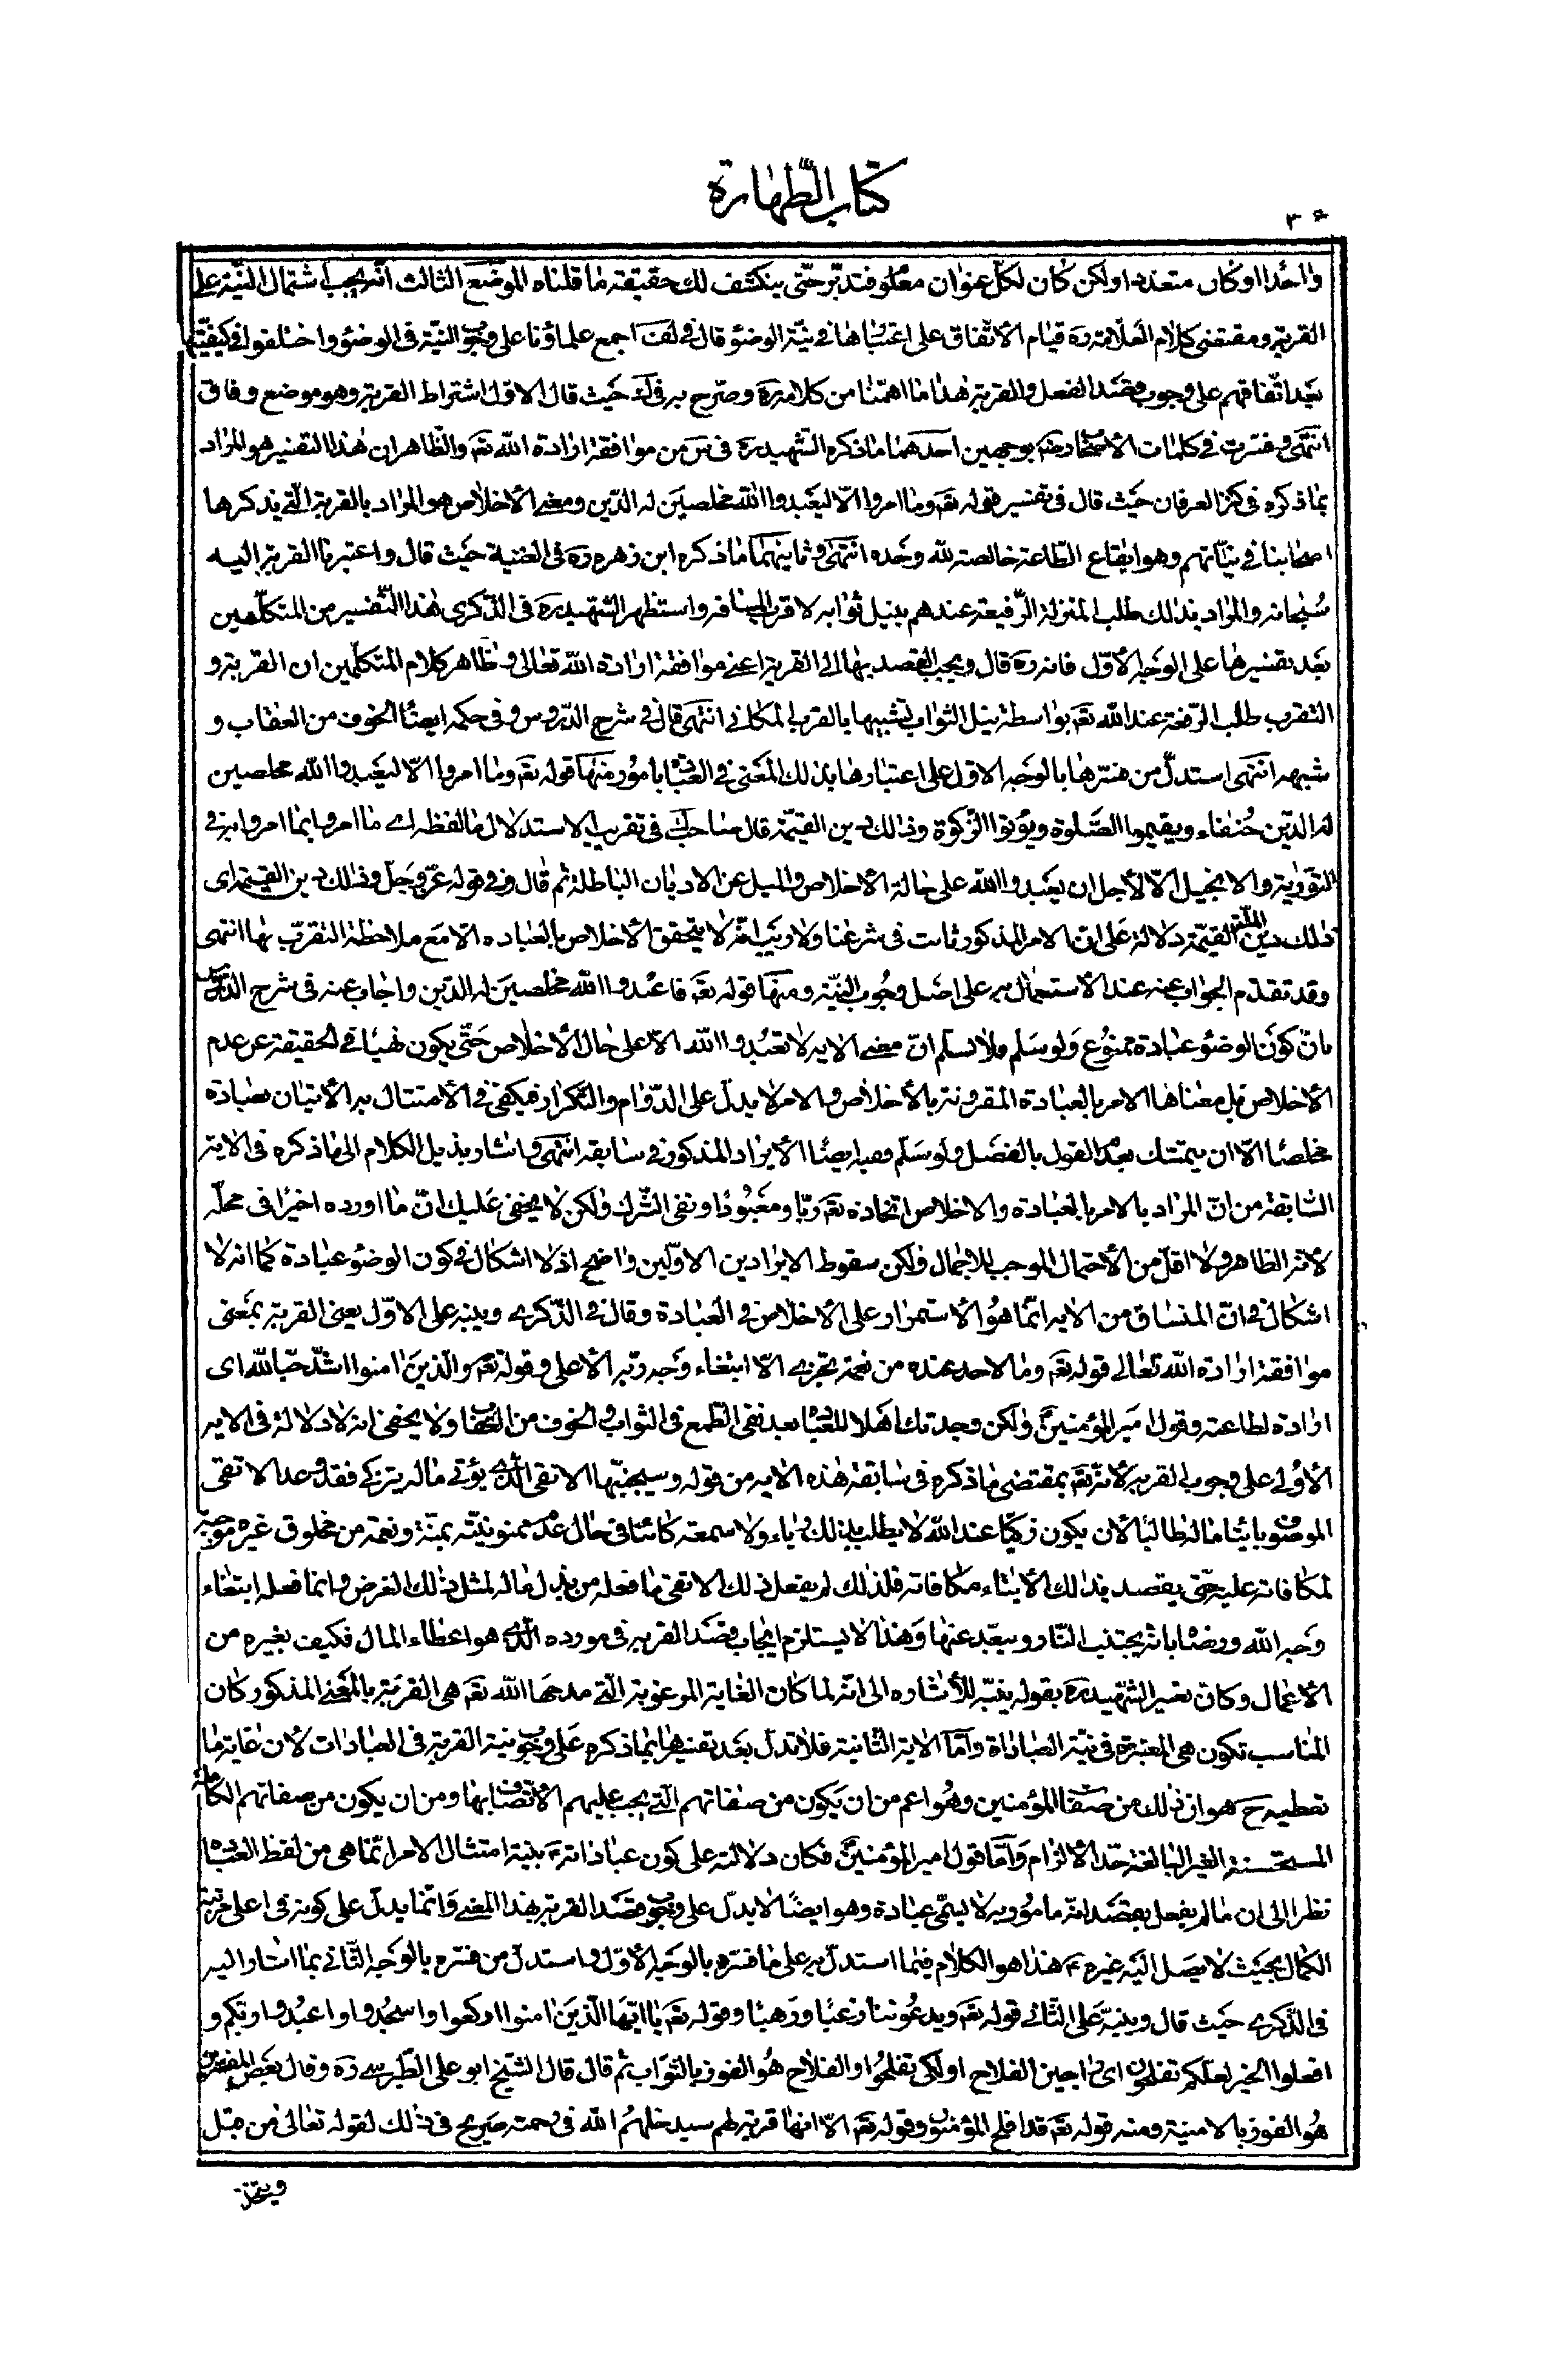 كتاب الطّهارة
٣۶
واحدا او كان متعددا ولكن كان لكلّ عنوان معلوم فتدبّر حتّى ينكشف لك حقيقة ما قلناه الموضع الثالث انّه يجب اشتمال النيّة على
القربة ومقتضى كلام العلّامة ره قيام الاتّفاق على اعتبارها فى نيّة الوضوء قال فى لف اجمع علماؤنا على وجوب النيّة فى الوضوء واختلفوا فى كيفيّتها
بعد اتّفاقهم على وجوب قصد الفعل والقربة هذا ما اهمّنا من كلامه ره وصرّح به فى حيث قال الاوّل اشتراط القربة وهو موضع وفاق
انتهى وفسّرت فى كلمات الاصحاب رضى بوجهين احدهما ما ذكره الشّهيد ره فى س من موافقة ارادة اللّه تع والظّاهر ان هذا التفسير هو المراد
بما ذكره فى كنز العرفان حيث قال فى تفسير قوله تع وما امروا الّا ليعبدوا اللّه مخلصين له الدّين ومعنى الاخلاص هو المراد بالقربة الّتى يذكرها
اصحابنا فى نيّاتهم وهو ايقاع الطّاعة خالصة للّه وحده انتهى وثانيهما ما ذكره ابن زهره ره فى الغنية حيث قال واعتبرنا القربة اليه
سبحانه والمراد بذلك طلب المنزلة الرّفيعة عندهم بنيل ثوابه لا قرب المسافه واستظهر الشّهيد ره فى الذّكرى هذا التّفسير من المتكلّمين
بعد تفسيرها على الوجه الاوّل فانه ره قال ويجب القصد بها الى القربة اعنى موافقة ارادة اللّه تعالى وظاهر كلام المتكلّمين ان القربة و
التقرب طلب الرّفعة عند اللّه تع بواسطة نيل الثواب تشبيها بالقرب المكانى انتهى قال فى شرح الدّروس وفى حكمه ايضا الخوف من العقاب و
شبهه انتهى استدلّ من فسّرها بالوجه الاوّل على اعتبارها بذلك المعنى فى العبادة بامور منها قوله تع وما امروا الّا ليعبدوا اللّه مخلصين
له الدّين حنفاء ويقيموا الصّلوة ويؤتوا الزّكوة وذلك دين القيّمة قال صاحب ك فى تقريب الاستدلال ما لفظه اى ما امروا بما امروا به فى
التّورية والانجيل الّا لأجل ان يعبدوا اللّه على حالة الاخلاص والميل عن الاديان الباطلة ثم قال وفى قوله عزّ وجلّ وذلك دين القيّمة اى
ذلك دين الملّة القيّمة دلالة على انّ الامر المذكور ثابت فى شرعنا ولا ريب انّه لا يتحقق الاخلاص بالعبادة الا مع ملاحظة التقرّب بها انتهى
وقد تقدّم الجواب عنه عند الاستدلال به على اصل وجوب النيّة ومنها قوله تع فاعبدوا اللّه مخلصين له الدّين واجاب عنه فى شرح الدّروس
بانّ كون الوضوء عبادة ممنوع ولو سلّم فلا نسلّم انّ معنى الاية لا تعبدوا اللّه الّا على حال الاخلاص حتّى يكون نهيا فى الحقيقة عن عدم
الاخلاص بل معناها الامر بالعبادة المقرونة بالاخلاص والامر لا يدلّ على الدّوام والتّكرار فيكفى فى الامتثال به الاتيان بعبادة
مخلصا الّا ان يتمسّك بعدم القول بالفصل ولو سلّم فعليه ايضا الايراد المذكور فى سابقه انتهى واشار بذيل الكلام الى ما ذكره فى الاية
السّابقة من انّ المراد بالامر بالعبادة والاخلاص اتخاذه تع ربّا ومعبودا ونفى الشّرك ولكن لا يخفى عليك انّ ما اورده اخيرا فى محلّه
لانّه الظاهر ولا اقلّ من الاحتمال الموجب للاجمال ولكن سقوط الايرادين الاوّلين واضح اذ لا اشكال فى كون الوضوء عبادة كما انه لا
اشكال فى انّ المنساق من الاية انّما هو الاستمرار على الاخلاص فى العبادة وقال فى الذّكرى وينبه على الاوّل يعنى القربة بمعنى
موافقة ارادة اللّه تعالى قوله تع وما لاحد عنده من نعمة تجزى الّا ابتغاء وجه ربّه الاعلى وقوله تع والّذين امنوا اشدّ حبّا للّه اى
ارادة لطاعته وقول امير المؤمنين ع ولكن وجدتك اهلا للعبادة بعد نفى الطّمع فى الثواب والخوف من العقاب ولا يخفى انه لا دلالة فى الاية
الاولى على وجوب القربة لانّه تع بمقتضى ما ذكره فى سابقة هذه الاية من قوله وسيجنّبها الاتقى الّذى يؤتى ماله يتزكّى فقد وعد الاتقى
الموصوف بايتاء ماله طالبا لان يكون زكيّا عند اللّه لا يطلب بذلك رياء ولا سمعة كائنا فى حال عدم منويّته بمنّة ونعمة من مخلوق غيره موجبة
لمكافاته عليه حتّى يقصد بذلك الايتاء مكافاته فلذلك لم يفعل ذلك الاتقى ما فعله من بذل ماله لمثل ذلك الغرض وانما فعله ابتغاء
وجه اللّه ورضاه بانّه يجتنب النّار ويبعّد عنها وهذا لا يستلزم ايجاب قصد القربة فى مورده الّذى هو اعطاء المال فكيف بغيره من
الاعمال وكان تعبير الشّهيد ره بقوله ينبّه للاشاره الى انّه لما كان الغاية المرغوبة الّتى مدحها اللّه تع هى القربة بالمعنى المذكور كان
المناسب تكون هى المعتبرة فى نيّة العبادات وامّا الاية الثّانية فلا تدلّ بعد تفسيرها بما ذكره على وجوب نية القربة فى العبادات لان غاية ما
تعطيه ح هو ان ذلك من صفات المؤمنين وهو اعم من ان يكون من صفاتهم الّتى يجب عليهم الاتّصاف بها ومن ان يكون من صفاتهم الكاملة
المستحسنة الغير البالغة حدّ الالزام وامّا قول امير المؤمنين ع فكان دلالته على كون عباداته ع بنية امتثال الامر انّما هى من لفظ العبادة
نظرا الى ان ما لم يفعل بقصد انّه مامور به لا يسمّى عبادة وهو ايضا لا يدلّ على وجوب قصد القربة بهذا المعنى وانّما يدلّ على كونه فى اعلى مرتبة
الكمال بحيث لا يصل اليه غيره ع هذا هو الكلام فيما استدلّ به على ما فسّره بالوجه الاوّل واستدلّ من فسّره بالوجه الثّانى بما اشار اليه
فى الذّكرى حيث قال وينبّه على الثّانى قوله تع ويدعوننا رغبا ورهبا وقوله تع يا ايّها الّذين امنوا اركعوا واسجدوا واعبدوا ربّكم و
افعلوا الخير لعلّكم تفلحون اى راجين الفلاح او لكى تفلحوا والفلاح هو الفوز بالثّواب ثم قال قال الشّيخ ابو على الطّبرسى ره وقال بعض المفسّرين
هو الفوز بالامنية ومنه قوله تع قد افلح المؤمنون وقوله تع الّا انها قربة لهم سيدخلهم اللّه فى رحمته صريح فى ذلك لقوله تعالى من قبل
ويتخذ